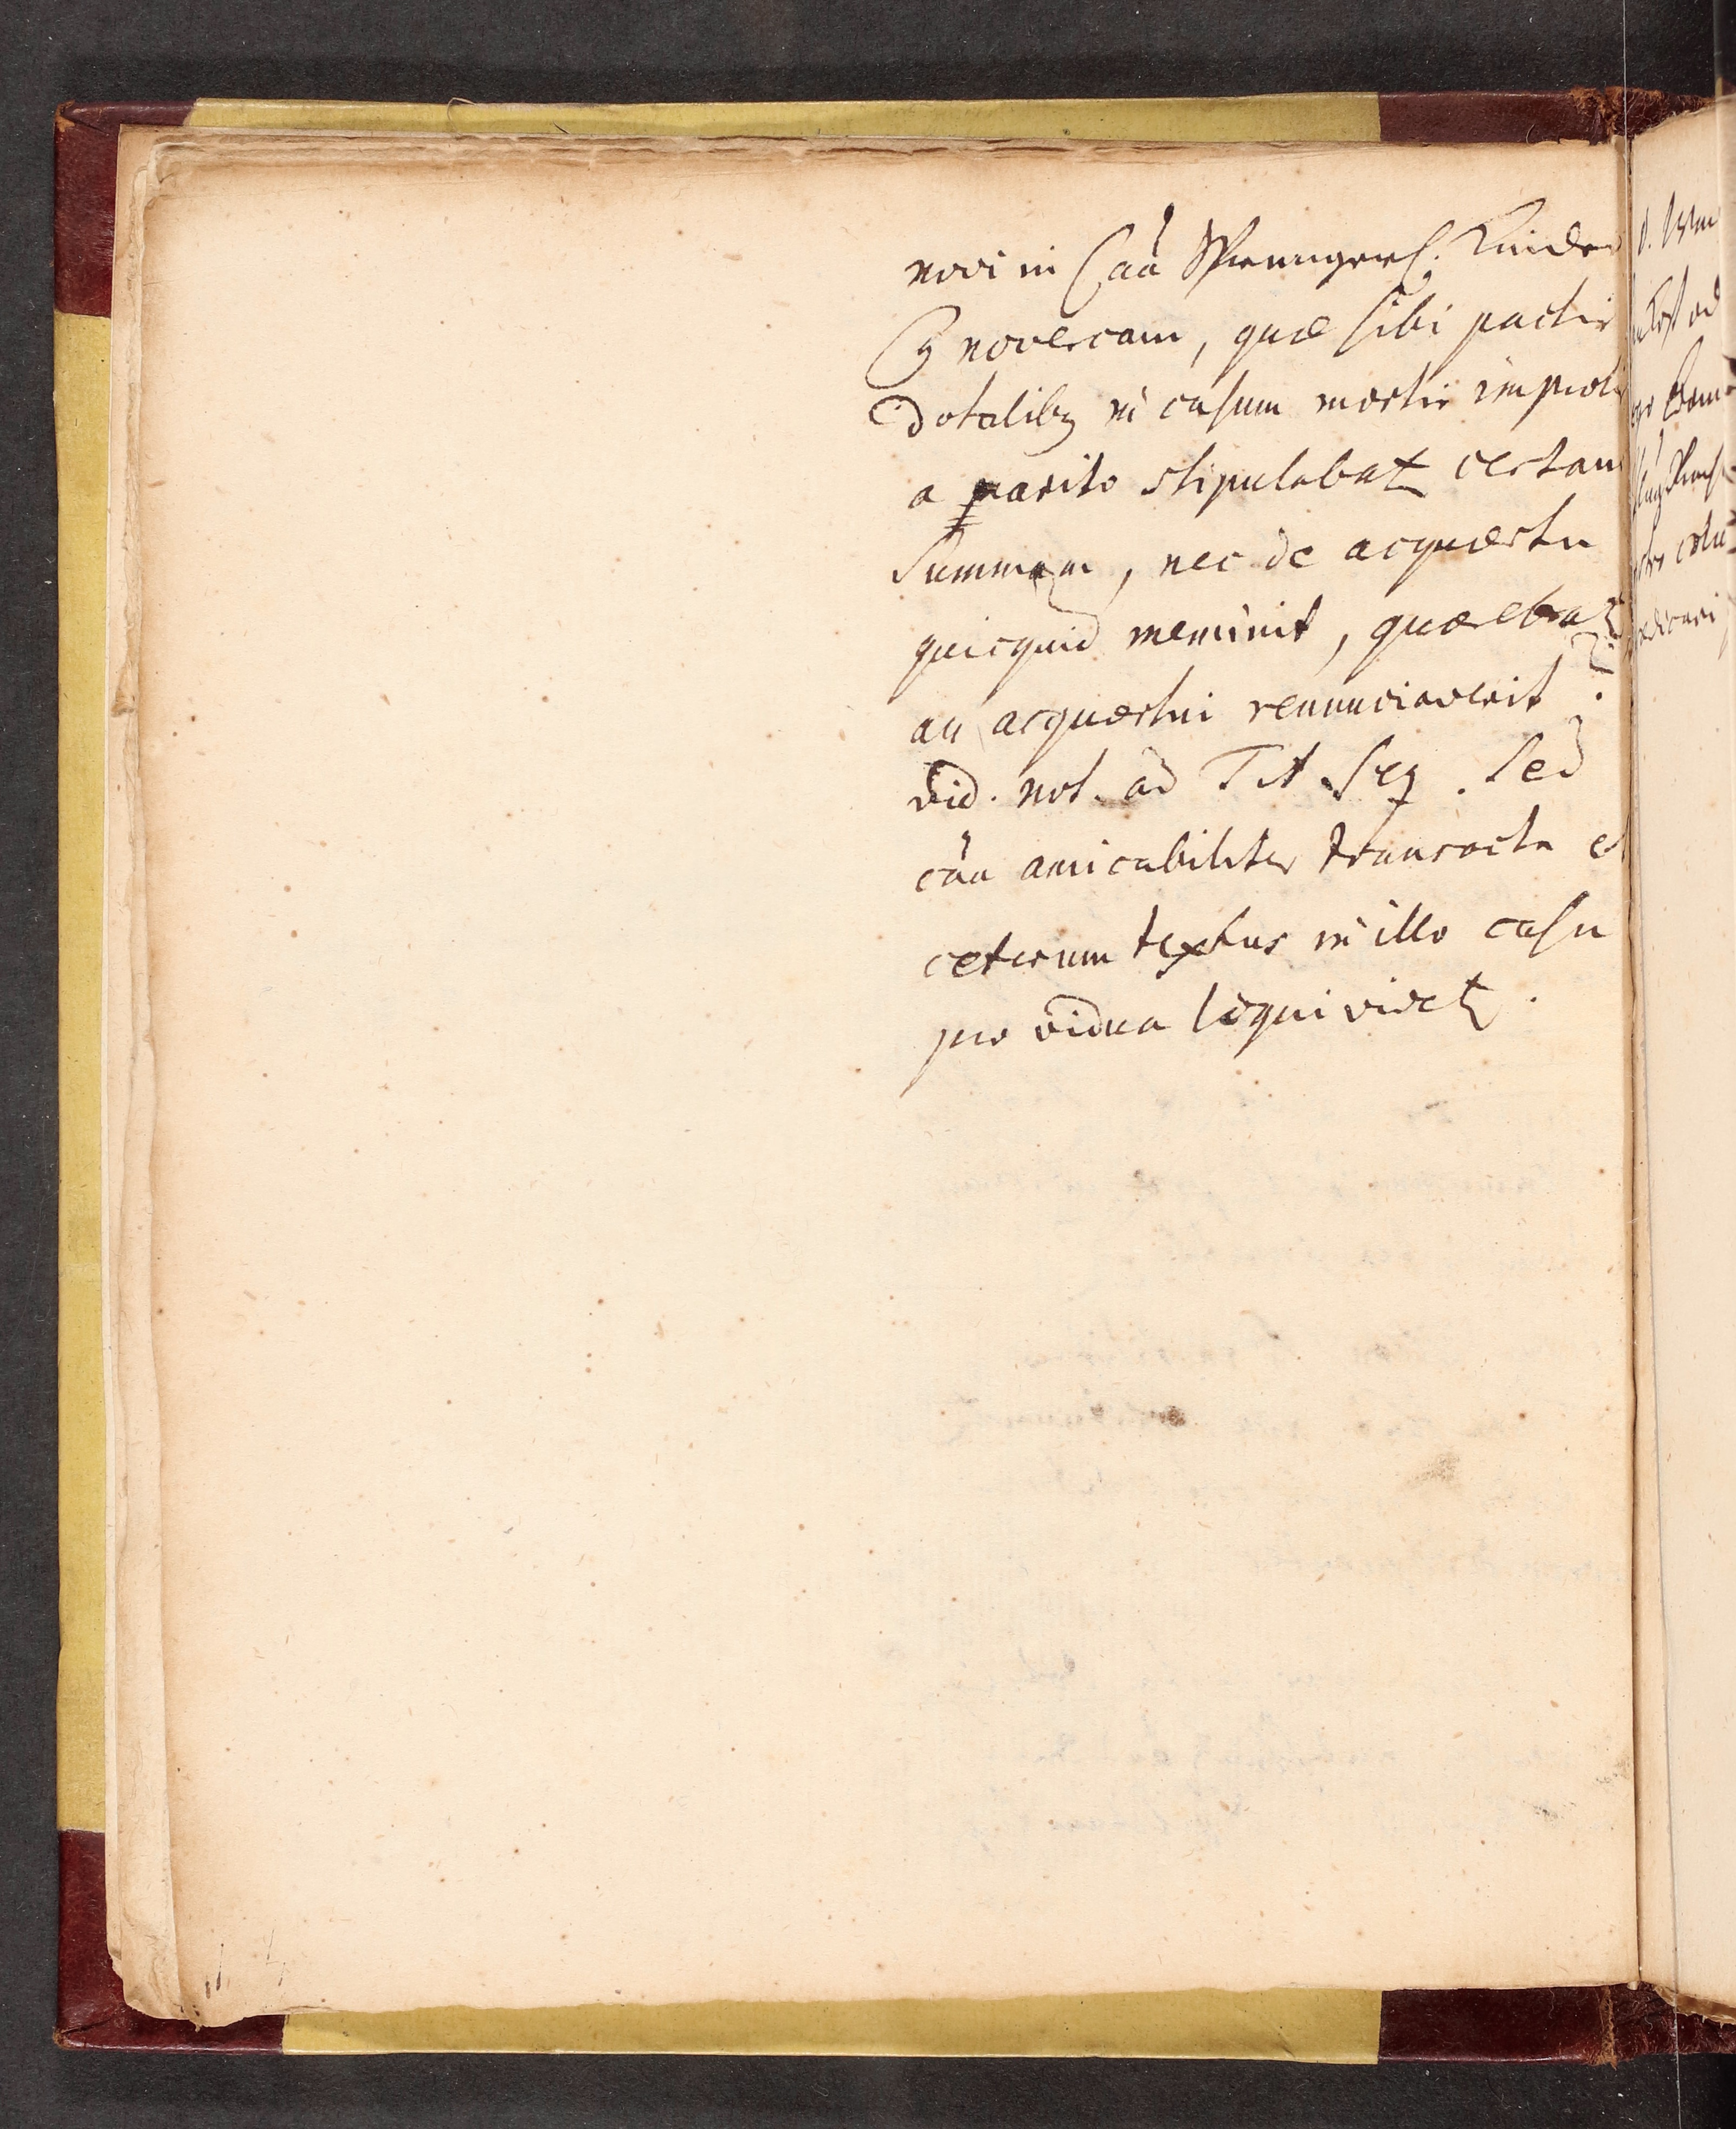 novi in Caa Sprengerl. Kinder
Cq novercam, quæ sibi pactis
dotalibq in casum mortis improli
a marito stipulabat certam
Summam, nec de acquæstu
quicquid meminit, quærebat
an acquæstui renunciaverit?
vid. not. ad Tit. seq. Sed
cãa amicabiliter transacta e
ceterum textus in illo casu
pro vidua loqui videt.